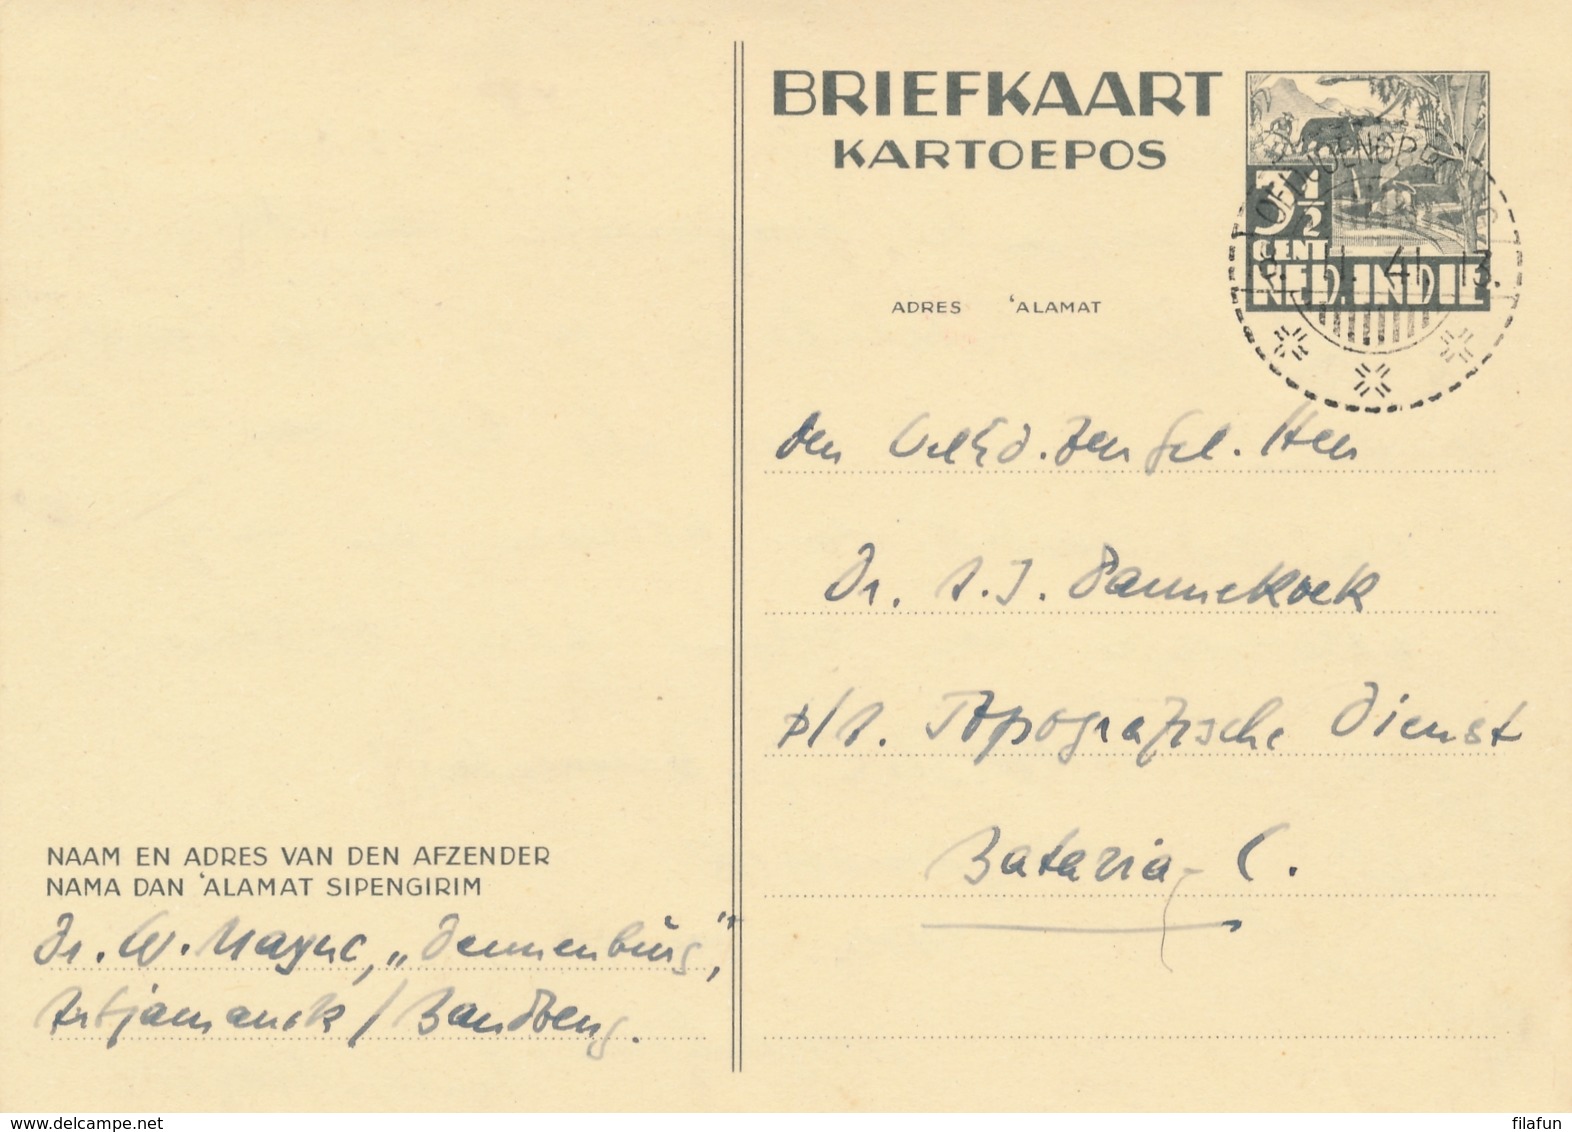 BRIEFKAART
KARTOEPOS
3 1/2
CENT
NED. INDIE
11. 41. 13.
ADRES 'ALAMAT
den Heer
Dr. A. J. Pannekoek
p/a. Topografische Dienst
Batavia-C.
NAAM EN ADRES VAN DEN AFZENDER
NAMA DAN 'ALAMAT SIPENGIRIM
Dr. W. „Dennenburg",
/ Bandoeng.
www.delcampe.net
filafun